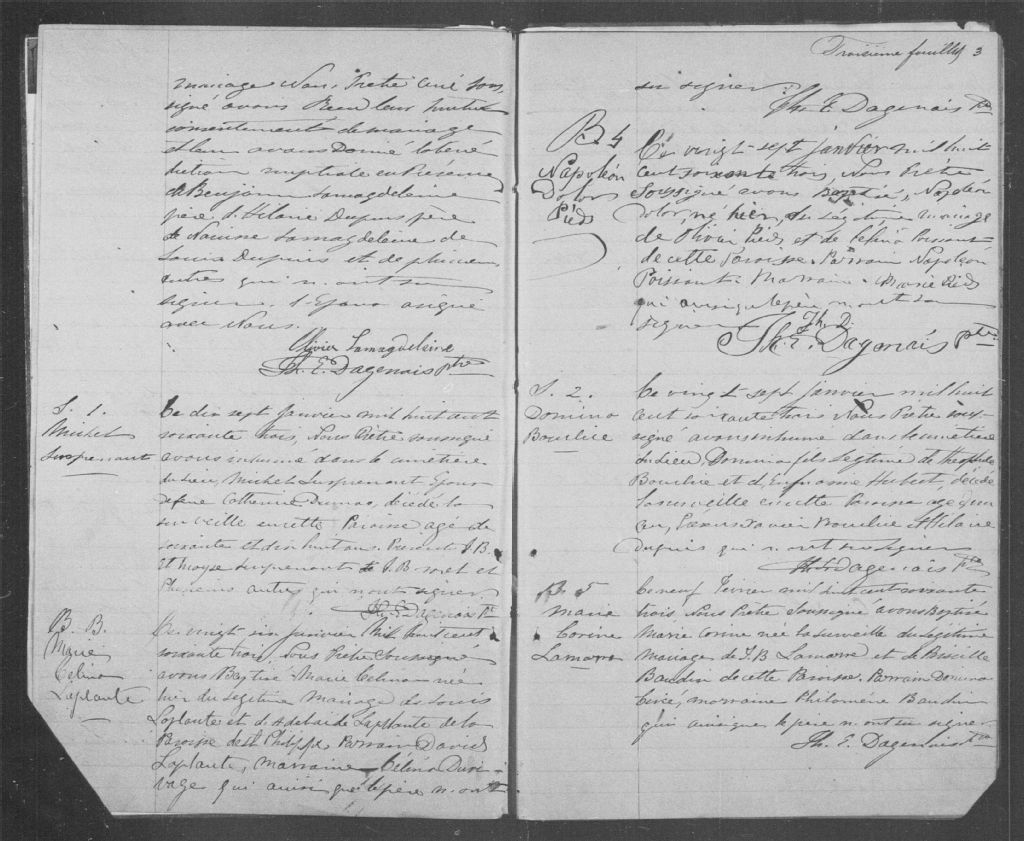 mariage Nous Prêtre Curé sous
signé avons Reçu leur mutuel
consentement de mariage
et leur avons Donné la béné
diction nuptiale en Présence
de Benjamin Lamagdeleine
père d'Hilaire Dupuis père
de Narcisse Lamagdeleine de
Louis Dupuis et de plusieurs
autres qui n'ont su
signer. L'Epoux a signé
avec Nous.
Olivier Lamagdeleine
Th. E. Dagenais ptre
S. 1.
Michel
Surprenant
Ce dix sept Janvier mil huit cent
soixante trois, Nous Prêtre soussigné
avons inhumé dans le cimetière
du lieu, Michel Surprenant Epoux
Catherine décédé la
surveille en cette Paroisse agé de
soixante et dix huit ans. Présents J. B.
et Moyse Surprenant et J. B. et
Plusieurs autres qui n'ont signer
Th. E. Dagenais Ptre
B. B.
Marie
Célina
Laplante
Ce vingt six Janvier Mil huit cent
soixante trois, Nous Prêtre Soussigné
avons Baptisé Marie Célina née
hier du Légitime Mariage de Louis
Laplante et d'Adelaide Laplante de la
Paroisse de St Philippe, Parrain David
Laplante, Marraine Célina Duri-
vage qui ainsi que le père n'ont
Troisième feuillet 3
su signer.
Th. E. Dagenais Ptre
B 4
Napoléon
Dolor
Pieds
Ce vingt sept janvier mil huit
Cent soixante trois, Nous Prêtre
Soussigné avons Baptisé, Napoléon
Dolor, né hier, du Légitime mariage
de Olivier Pieds et de Poissant
de cette Paroisse. Parrain Napoléon
Poissant. Marraine Marie Pieds
qui ainsi que le père n'ont su
signer
Th. D.
Th. E. Dagenais ptre
S. 2.
Domina
Bourlie
Ce vingt sept janvier mil huit
Cent soixante trois Nous Prêtre sous-
signé avons inhumé dans le cimetière
du lieu, Domina fils Légitime de Théophile
Bourlie et d'Euphrosine Hubert, décédé
la surveille en cette Paroisse agé d'un
an, Présents Xavier Bourlie et Hilaire
Dupuis qui n'ont su signer
Th. E. Dagenais Ptre
B. 5
Marie
Corine
Lamarre
Ce neuf Février mil huit cent soixante
trois Nous Prêtre Soussigné avons Baptisé
Marie Corine née la surveille du Légitime
Mariage de J B Lamarre et de Priscille
Baudin de cette Paroisse. Parrain Domina
marraine Philomène Baudin
qui ainsi que le père n'ont su signer
Th. E. Dagenais Ptre